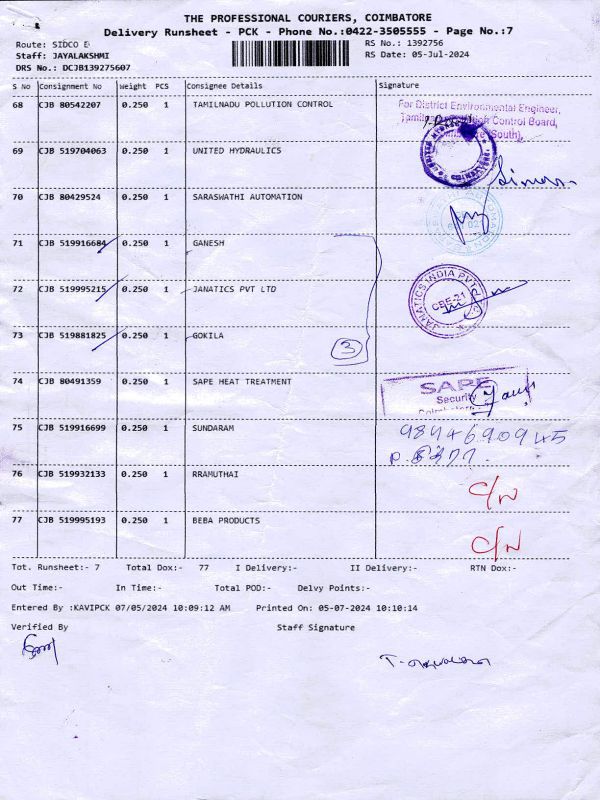 THE PROFESSIONAL COURIERS, COIMBATORE
Delivery Runsheet - PCK - Phone No.:0422-3505555 - Page No.:7
Route: SIDCO E
RS No.: 1392756
Staff: JAYALAKSHMI
RS Date: 05-Jul-2024
DRS No.: DCJB139275607
S No Consignment No Weight PCS Consignee Details Signature
68 CJB 80542207 0.250 1 TAMILNADU POLLUTION CONTROL
For District Environmental Engineer,
Control Board,
(South),
69 CJB 519704063 0.250 1 UNITED HYDRAULICS
70 CJB 80429524 0.250 1 SARASWATHI AUTOMATION
71 CJB 519916684 0.250 1 GANESH
72 CJB 519995215 0.250 1 JANATICS PVT LTD
JANATICS INDIA PVT
CBE-21
73 CJB 519881825 0.250 1 GOKILA
3
74 CJB 80491359 0.250 1 SAPE HEAT TREATMENT
SAPE
Security
75 CJB 519916699 0.250 1 SUNDARAM
9844690945
76 CJB 519932133 0.250 1 RRAMUTHAI
C/N
77 CJB 519995193 0.250 1 BEBA PRODUCTS
C/N
Tot. Runsheet:- 7 Total Dox:- 77 I Delivery:- II Delivery:- RTN Dox:-
Out Time:- In Time:- Total POD:- Delvy Points:-
Entered By :KAVIPCK 07/05/2024 10:09:12 AM Printed On: 05-07-2024 10:10:14
Verified By Staff Signature